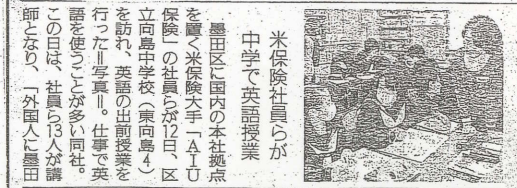 米保険社員らが
中学で英語授業
墨田区に国内の本社拠点
を置く米保険大手「AIU
保険」の社員らが12日、区
立向島中学校（東向島4）
を訪れ、英語の出前授業を
行った＝写真＝。仕事で英
語を使うことが多い同社。
この日は、社員ら13人が講
師となり、「外国人に墨田